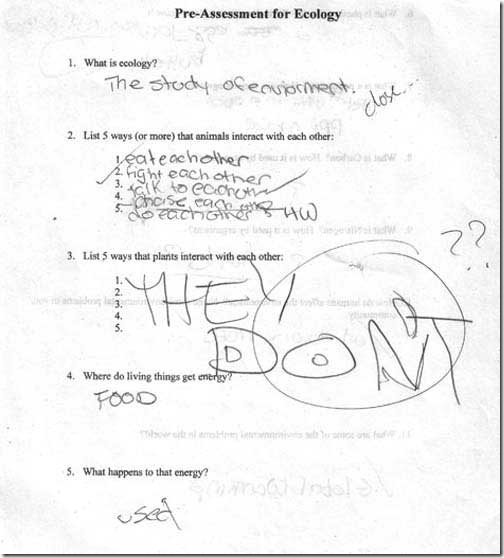 Pre-Assessment for Ecology
1. What is ecology?
The study of enviorment.
close...
2. List 5 ways (or more) that animals interact with each other:
1. eat each other
2. fight each other
3. talk to eachother
4. each other
5. do eachother's HW
3. List 5 ways that plants interact with each other:
1.
2.
3.
4.
5.
THEY
DON'T
??
4. Where do living things get energy?
FOOD
5. What happens to that energy?
used